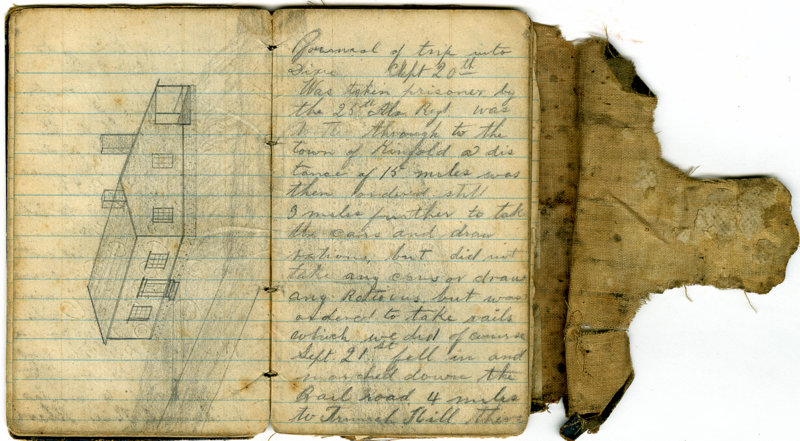 Journal of trip into
Dixie Sept 20th
Was taken prisoner by
the 25st Ala Regt was
through to the
town of Ringold a dis
tance of 15 miles was
then ordered still
3 miles further to tak
the cars and draw
rations, but did not
take any cars or draw
any Rations but was
ordered to take rails
which we did of course
Sept 21st fell in and
marched down the
Rail road 4 miles
to Tunnel Hill then